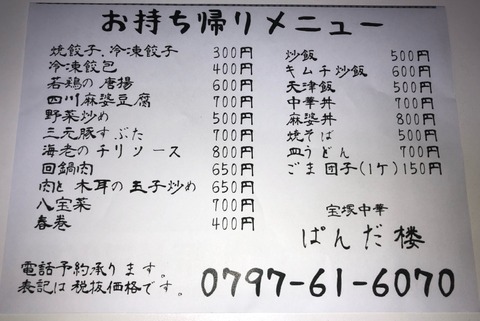 お持ち帰りメニュー
焼餃子、冷凍餃子 300円
冷凍餃包 400円
若鶏の唐揚 600円
四川麻婆豆腐 700円
野菜炒め 500円
三元豚すぶた 700円
海老のチリソース 800円
回鍋肉 650円
肉と木耳の玉子炒め 650円
八宝菜 700円
春巻 400円
炒飯 500円
キムチ炒飯 600円
天津飯 700円
中華丼 700円
麻婆丼 800円
焼そば 500円
皿うどん 700円
ごま団子(1ケ)150円
宝塚中華
ぱんだ楼
電話予約承ります。
表記は税抜価格です。
0797-61-6070